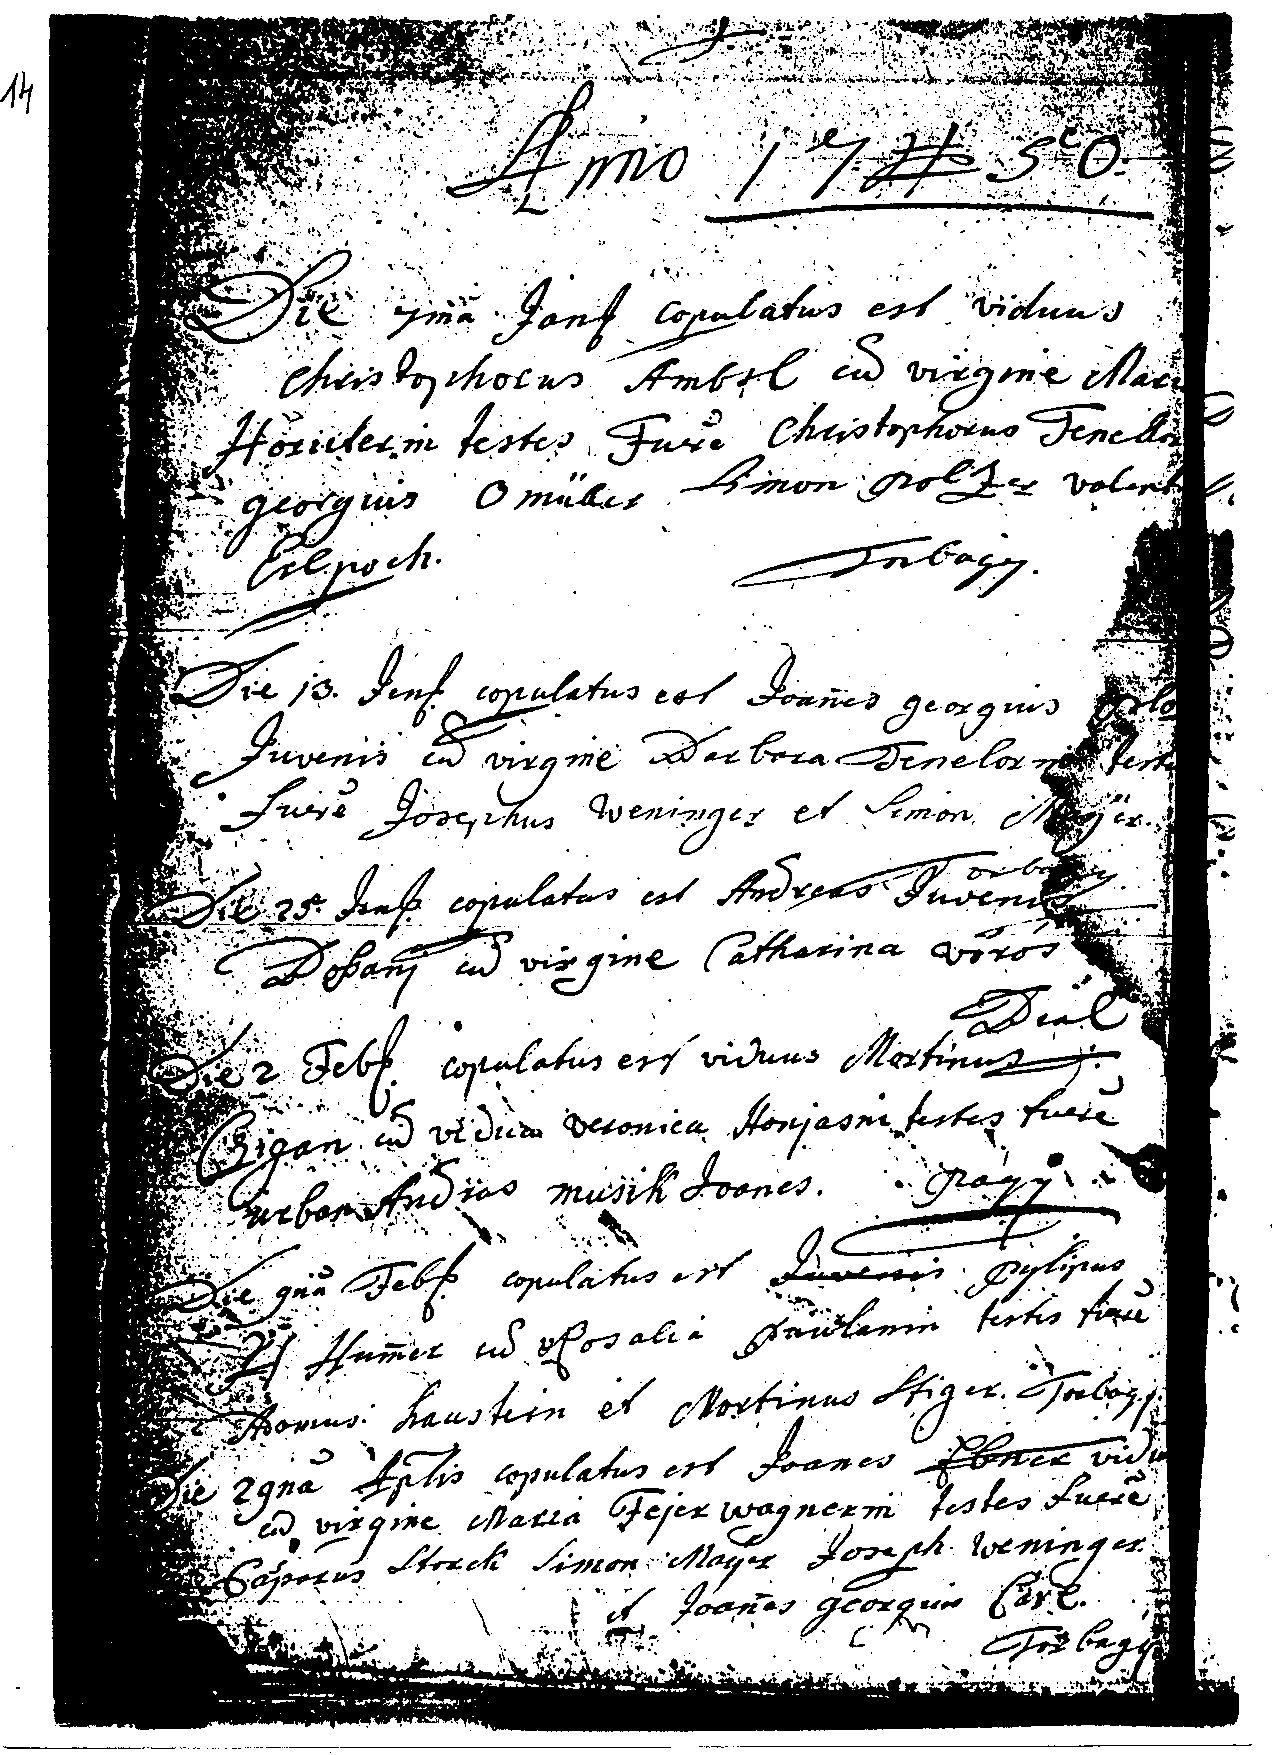 14
Anno 1750.
Die 7mã Janŗ copulatus est viduus
Christophorus Ambel cũ virgine Mari
testes Fuerẽ Christophorus Tenellor
georgius Omüller Simon polzer valent
Erlpoch. Torbagÿ.
Die 13. Janŗ copulatus est Joañes georgius
Juvenis cũ virgine Barbara Tenelorin test
fuerẽ Josephus Weninger et Simon Mayer.
Torbagy
Die 25. Janŗ copulatus est Andreas Juvenis
cũ virgine Catharina Vörös
Deäl
Die 2 Febŗ. copulatus est viduus Martinus
Czigan cũ vidua Veronica testes fuerẽ
urban Andreas musik Joanes. pagÿ
Die 9nã Febŗ copulatus est Juvenis pylipus
Hum̃er cũ Rosalia testes fuerẽ
Thomus haustein et Martinus Stiger. Torbagy
Die 29nã Aplis copulatus est Joanes Ebner vidu
cũ virgine Maria Fejer wagnerin testes fuerẽ
Casparus Storck Simon Mayer Joseph Weninger
et Joañes georgius
Torbagÿ